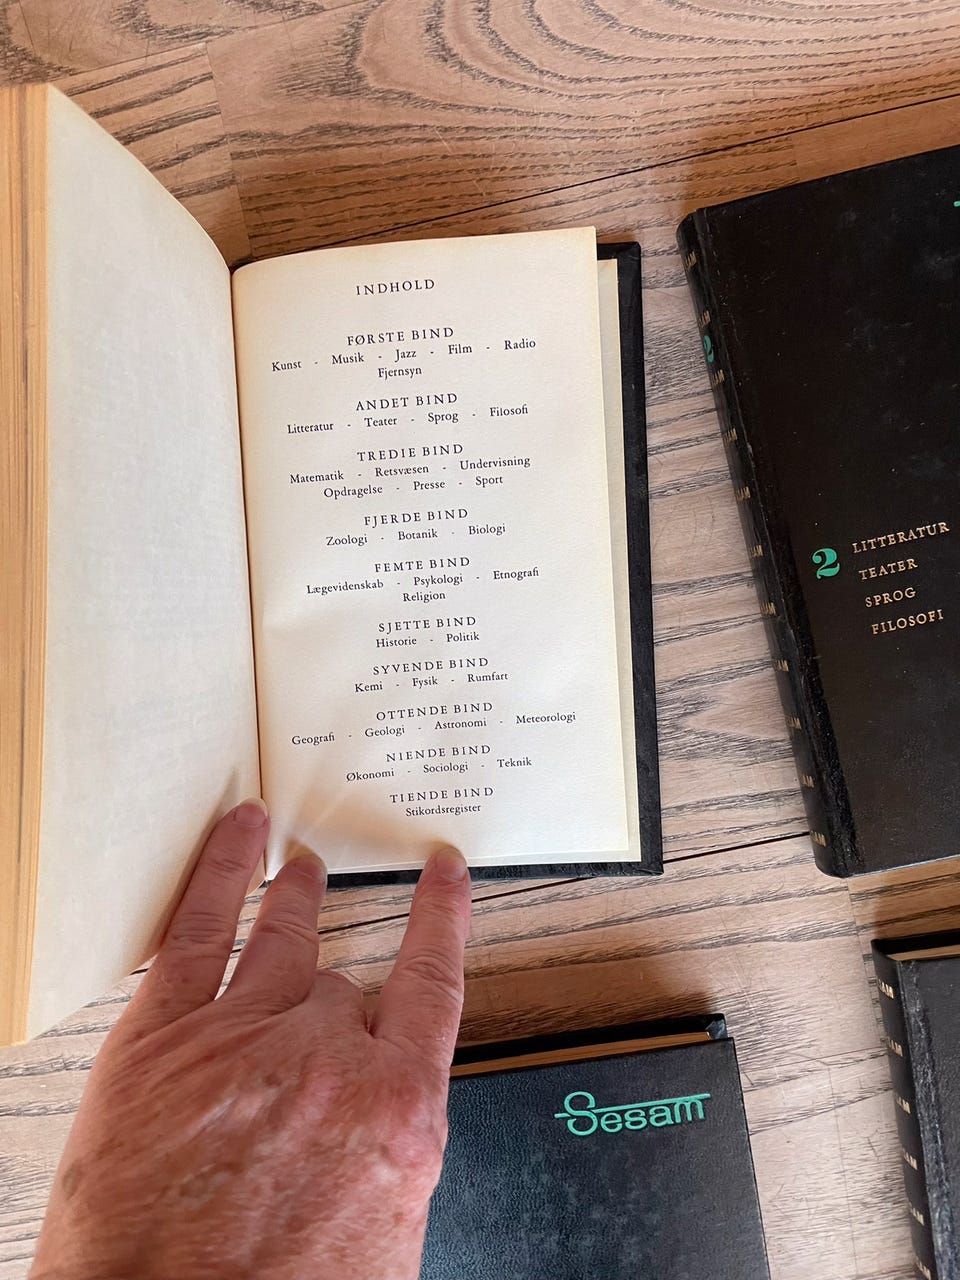 INDHOLD
FØRSTE BIND
Kunst - Musik - Jazz - Film - Radio
Fjernsyn
ANDET BIND
Litteratur - Teater - Sprog - Filosofi
TREDIE BIND
Matematik - Retsvæsen - Undervisning
Opdragelse - Presse - Sport
FJERDE BIND
Zoologi - Botanik - Biologi
FEMTE BIND
Lægevidenskab - Psykologi - Etnografi
Religion
SJETTE BIND
Historie - Politik
SYVENDE BIND
Kemi - Fysik - Rumfart
OTTENDE BIND
Geografi - Geologi - Astronomi - Meteorologi
NIENDE BIND
Økonomi - Sociologi - Teknik
TIENDE BIND
Stikordsregister
2
2 LITTERATUR
TEATER
SPROG
FILOSOFI
Sesam